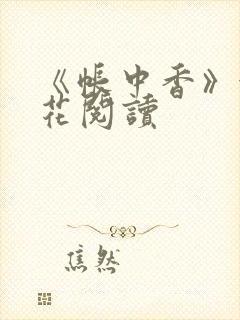 《帳中香》
花閱讀
焦然